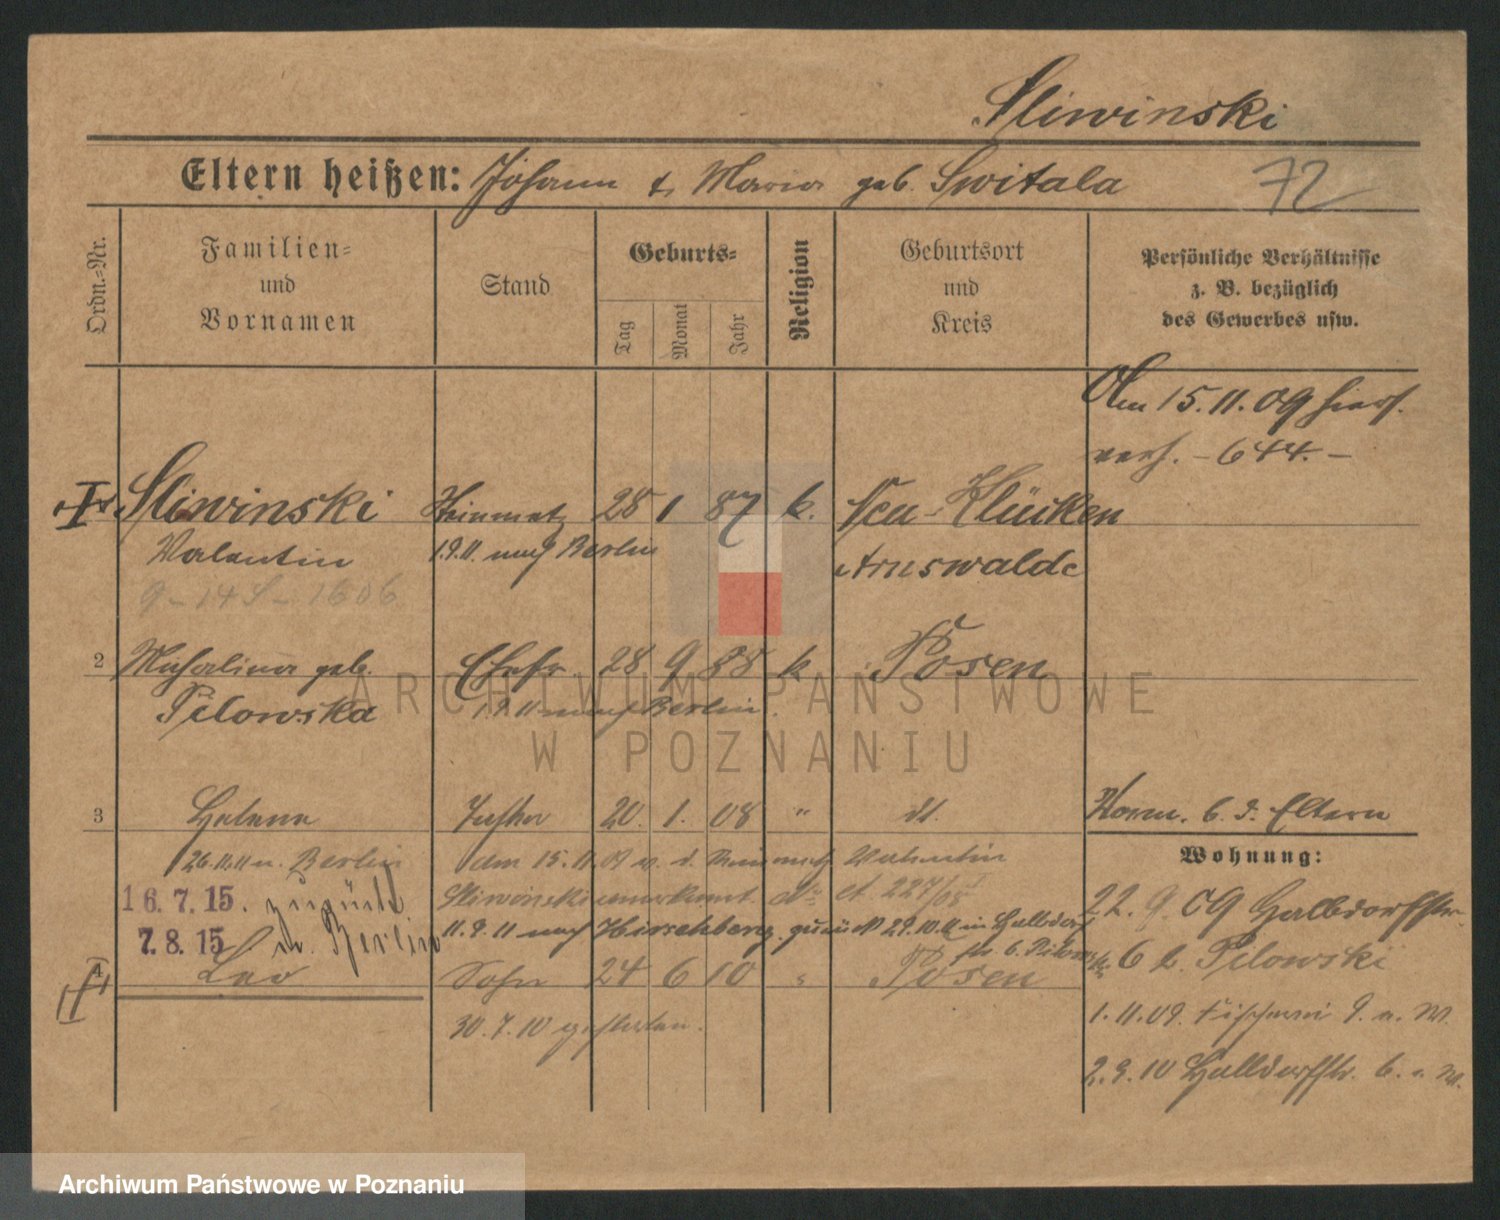 Sliwinski
Eltern heißen: Johann & Maria geb. Switala
72
Ordn.-Nr.
Familien-
und
Vornamen
Stand
Geburts-
Tag
Monat
Jahr
Religion
Geburtsort
und
Kreis
Persönliche Verhältnisse
z. B. bezüglich
des Gewerbes usw.
Am 15.11.09 hier
- 644. -
Sliwinski
Valentin
28 1 87 k.
Neu-Klücken
Arnswalde
1.9.11. nach Berlin
2
Michalina geb.
Pilowska
Ehefr. 28 9 88 k.
Posen
1.9.11 nach Berlin.
3
Helene
Tochter 20. 1. 08 "
dt.
Vorm. b. d. Eltern
26.11.11 n. Berlin
am 15.11.09 v. d. Valentin
Sliwinski anerkannt. 227/08
16.7.15. zurück
7.8.15 n. Berlin
11.9.11 nach Hirschberg. zurück 29.10.11 in Halbdorf
str. 6.
4
Leo
Sohn 24 6 10 "
Posen
30.7.10 gestorben.
Wohnung:
22.9.09 Halbdorfstr.
6 b. Pilowski
1.11.09. Fischerei 9.
2.9.10 Halbdorfstr. 6.
ARCHIWUM PAŃSTWOWE
W POZNANIU
Archiwum Państwowe w Poznaniu